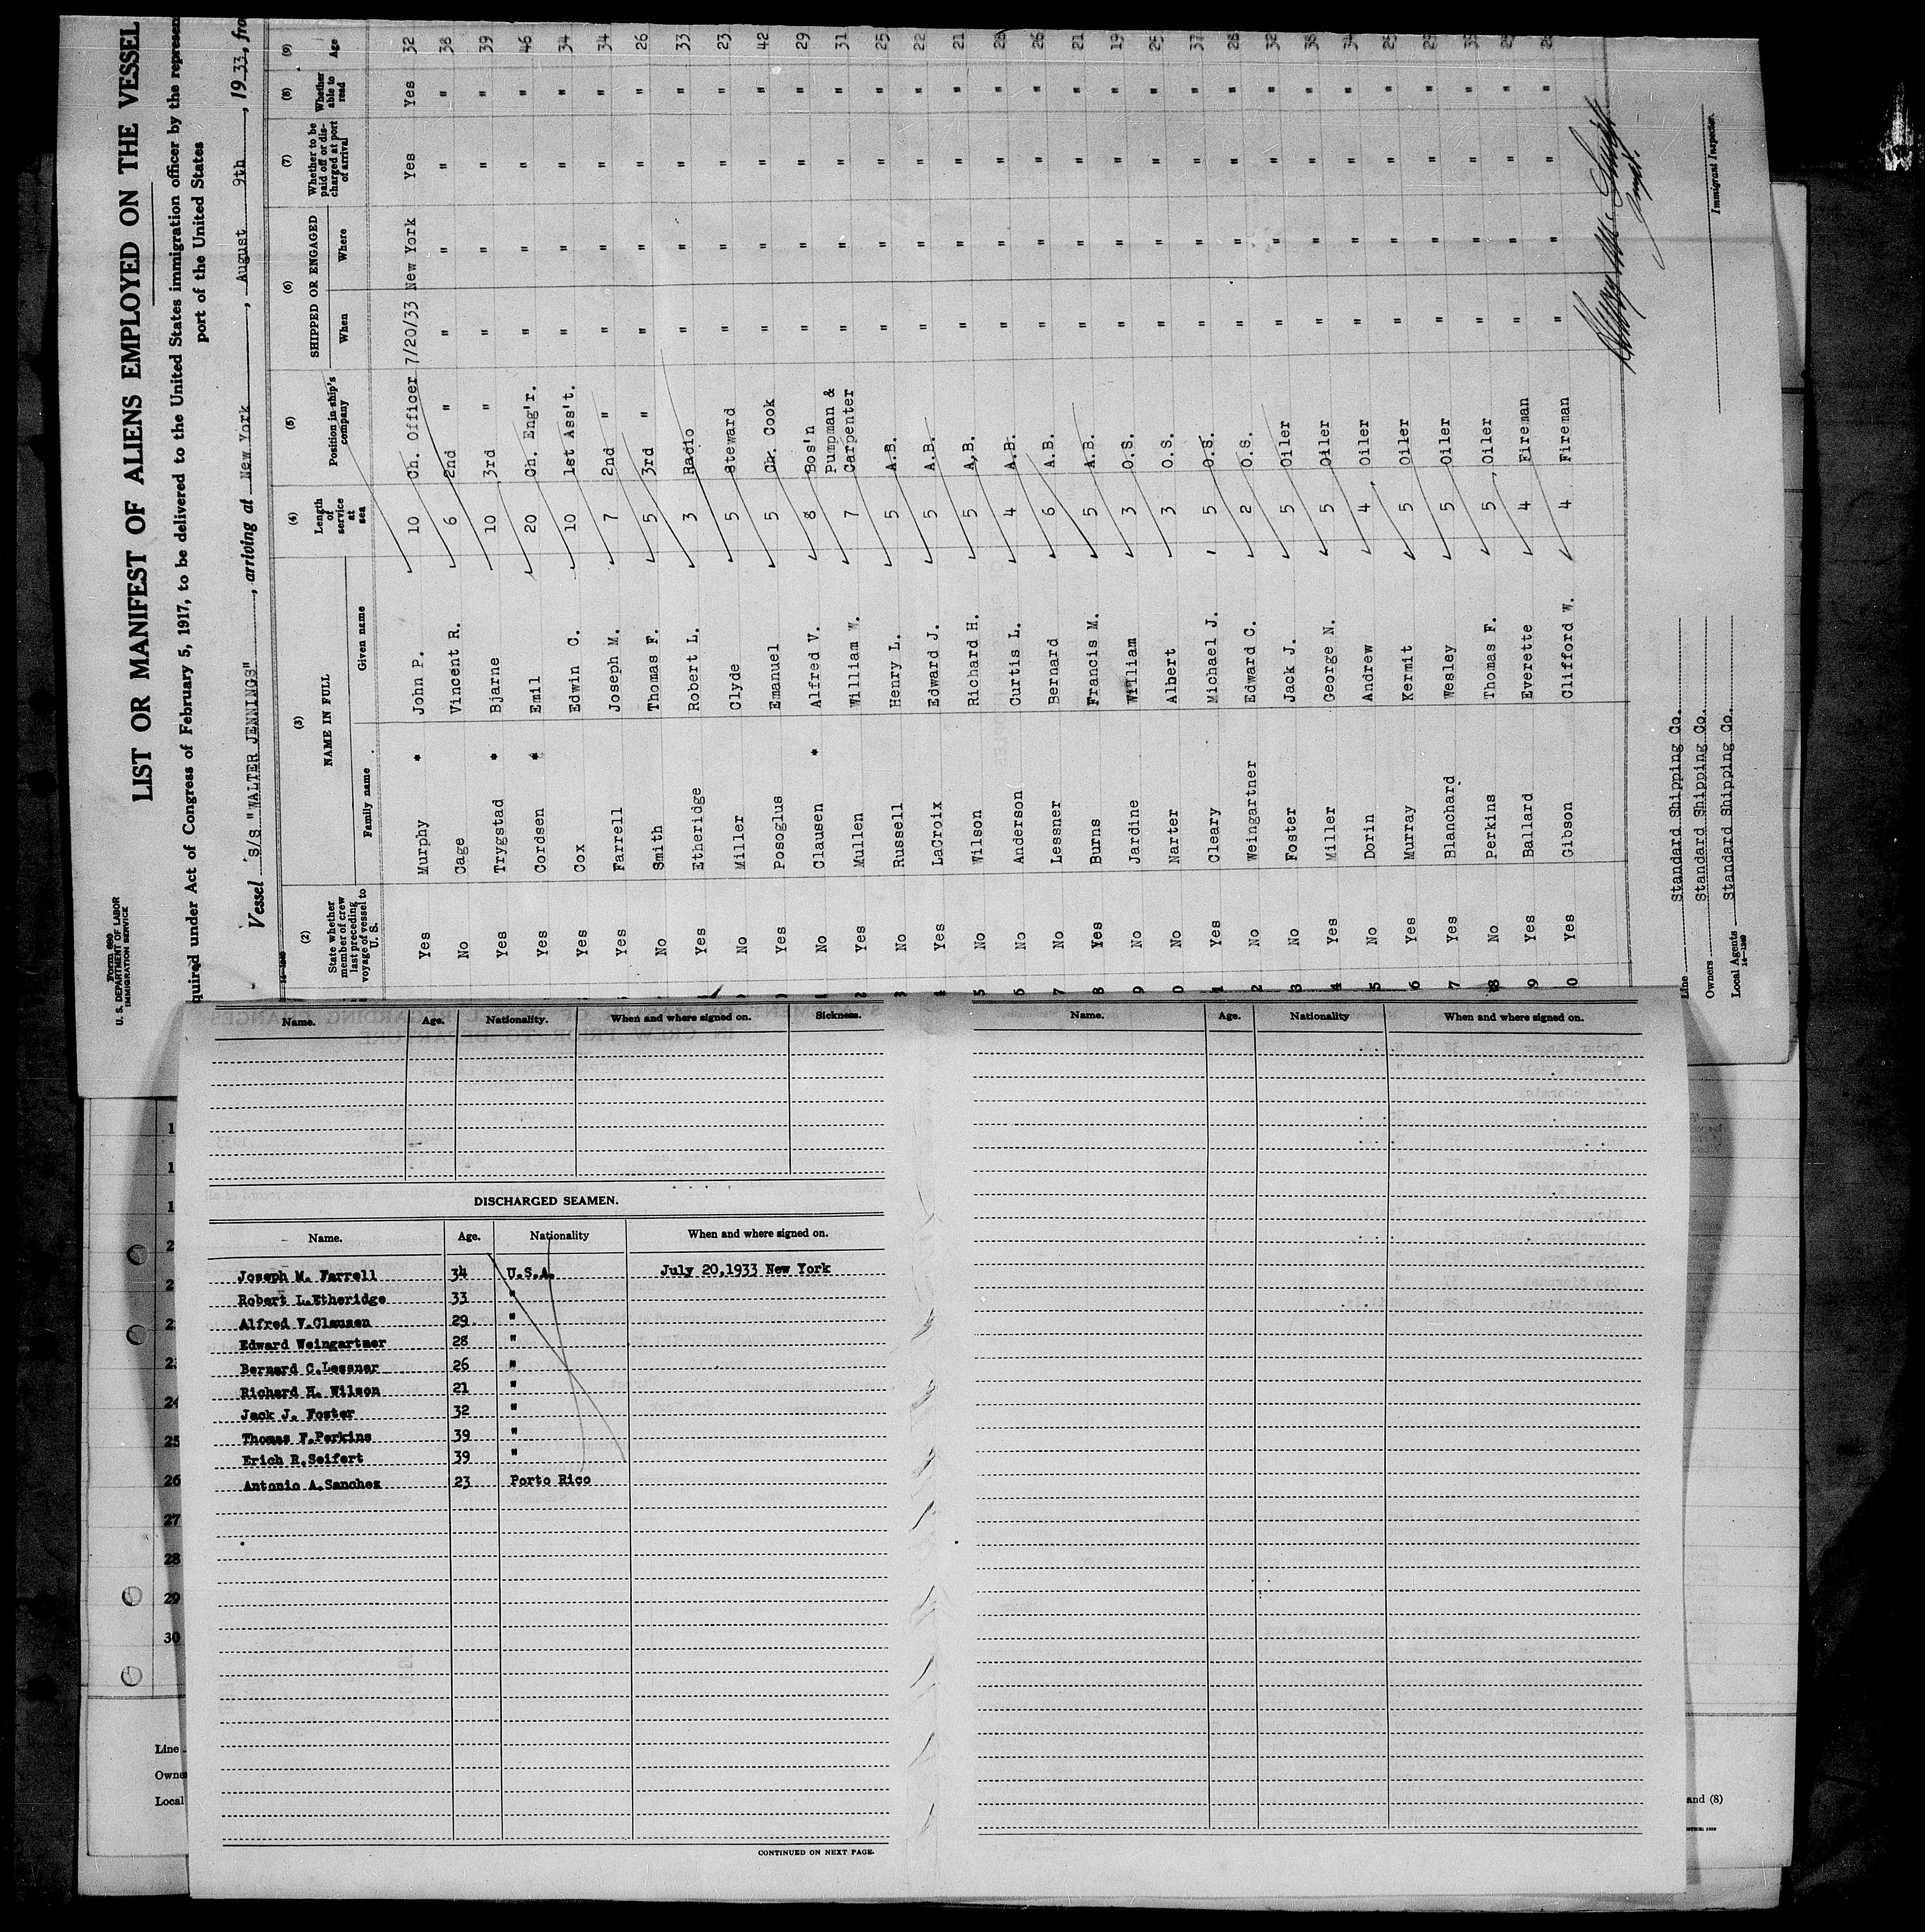 Form 689
U. S. DEPARTMENT OF LABOR
IMMIGRATION SERVICE
LIST OR MANIFEST OF ALIENS EMPLOYED ON THE VESSEL
quired under Act of Congress of February 5, 1917, to be delivered to the United States immigration officer by the represen
port of the United States
Vessel S/S "WALTER JENNINGS", arriving at New York, August 9th, 1933, fro
(2) (3) (4) (5) (6) (7) (8) (9)
State whether member of crew last preceding voyage of vessel to U. S. NAME IN FULL Family name Given name Length of service at sea Position in ship's company SHIPPED OR ENGAGED When Where Whether to be paid off or discharged at port of arrival Whether able to read Age
Yes Murphy * John P. 10 Ch. Officer 7/20/33 New York Yes Yes 32
No Cage Vincent R. 6 2nd " " " " " 38
Yes Trygstad * Bjarne 10 3rd " " " " " 39
Yes Cordsen * Emil 20 Ch. Eng'r. " " " " 46
Yes Cox Edwin C. 10 1st Ass't. " " " " 34
Yes Farrell Joseph M. 7 2nd " " " " " 34
No Smith Thomas F. 5 3rd " " " " " 26
Yes Etheridge Robert L. 3 Radio " " " " 33
No Miller Clyde 5 Steward " " " " 23
Yes Posoglus Emanuel 5 Ch. Cook " " " " 42
No Clausen * Alfred V. 8 Bos'n " " " " 29
Yes Mullen William W. 7 Pumpman & Carpenter " " " " 31
No Russell Henry L. 5 A.B. " " " " 25
Yes LaCroix Edward J. 5 A.B. " " " " 22
No Wilson Richard H. 5 A.B. " " " " 21
No Anderson Curtis L. 4 A.B. " " " " 28
No Lessner Bernard 6 A.B. " " " " 26
Yes Burns Francis M. 5 A.B. " " " " 21
No Jardine William 3 O.S. " " " " 19
No Narter Albert 3 O.S. " " " " 25
Yes Cleary Michael J. 5 O.S. " " " " 37
No Weingartner Edward C. 2 O.S. " " " " 28
No Foster Jack J. 5 Oiler " " " " 32
Yes Miller George N. 5 Oiler " " " " 38
No Dorin Andrew 4 Oiler " " " " 34
Yes Murray Kermit 5 Oiler " " " " 25
Yes Blanchard Wesley 5 Oiler " " " "
No Perkins Thomas F. 5 Oiler " " " " 39
Yes Ballard Everette 4 Fireman " " " "
Yes Gibson Clifford W. 4 Fireman " " " "
Line Standard Shipping Co.
Owners Standard Shipping Co.
Local Agents Standard Shipping Co.
14—1240
Immigrant Inspector.
Name. Age. Nationality. When and where signed on. Sickness.
DISCHARGED SEAMEN.
Name. Age. Nationality When and where signed on.
Joseph M. Farrell 34 U.S.A. July 20,1933 New York
Robert L.Etheridge 33 "
Alfred V.Clausen 29 "
Edward Weingartner 28 "
Bernard C.Lessner 26 "
Richard H. Wilson 21 "
Jack J. Foster 32 "
Thomas F.Perkins 39 "
Erich R.Seifert 39 "
Antonio A.Sanchez 23 Porto Rico
CONTINUED ON NEXT PAGE.
Name. Age. Nationality When and where signed on.
24
25
26
27
28
29
30
Line
Owne
Local
and (8)